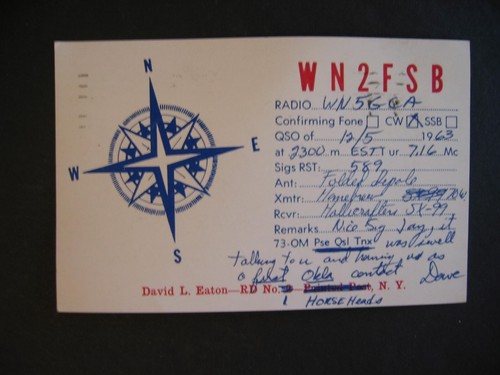 N
W
E
S
WN2FSB
RADIO WN5GCA
Confirming Fone CW SSB
QSO of 12/5 1963
at 2300 m EST Ur 7.16 Mc
Sigs RST: 589
Ant: Folded Dipole
Xmtr: Homebrew
Rcvr: Hallicrafters SX-99
Remarks Nice Sig Jay, it
73-OM Pse Qsl Tnx was swell
talking to u and having us as
a first Okla contact Dave
David L. Eaton—RD No. Painted Post, N. Y.
1 HORSEHeads